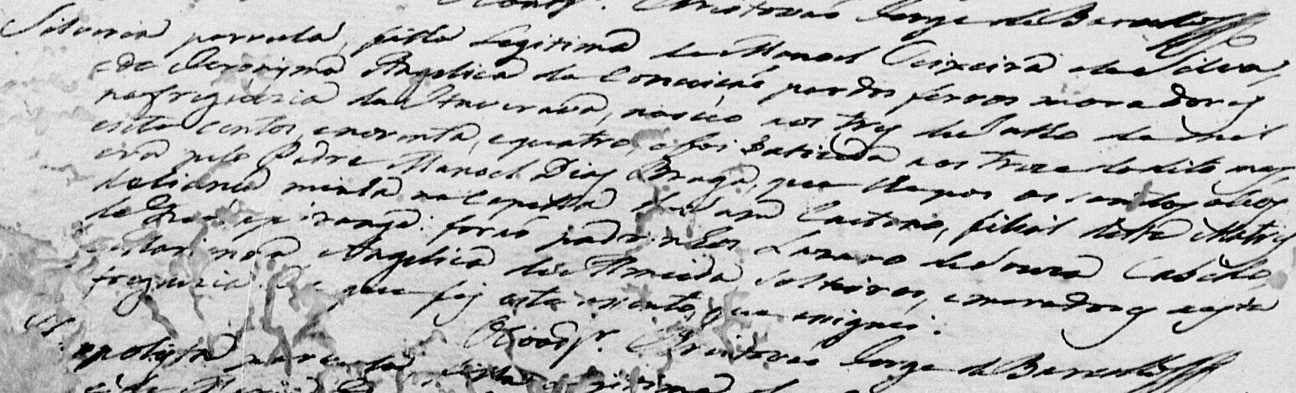 Coadjr. Christovão Jorge de Barcellos
Silveria parvula, filha legitima de Manoel Teixeira da Silva,
e de Jeronyma Angelica da Conceição pardos forros moradores
na freguezia da Itaverava, nasceo aos tres de Julho de mil
e sete centos, e noventa, e quatro, e foi baticada aos treze do dito mes,
era pelo Padre Manoel Dias Braga, que lhe pos os santos oleos
de licença minha na Capella de Santa Caetano, filial desta Matris
de Guarapiranga: foraõ padrinhos Lazaro de Souza Castilho,
e Mariana Angelica de Almeida solteiros, e moradores nesta
freguezia. De que fiz este asento, que asignei.
Coadjr. Christovão Jorge de Barcellos
Hypolyta parvula, filha legitima de
e de Maria